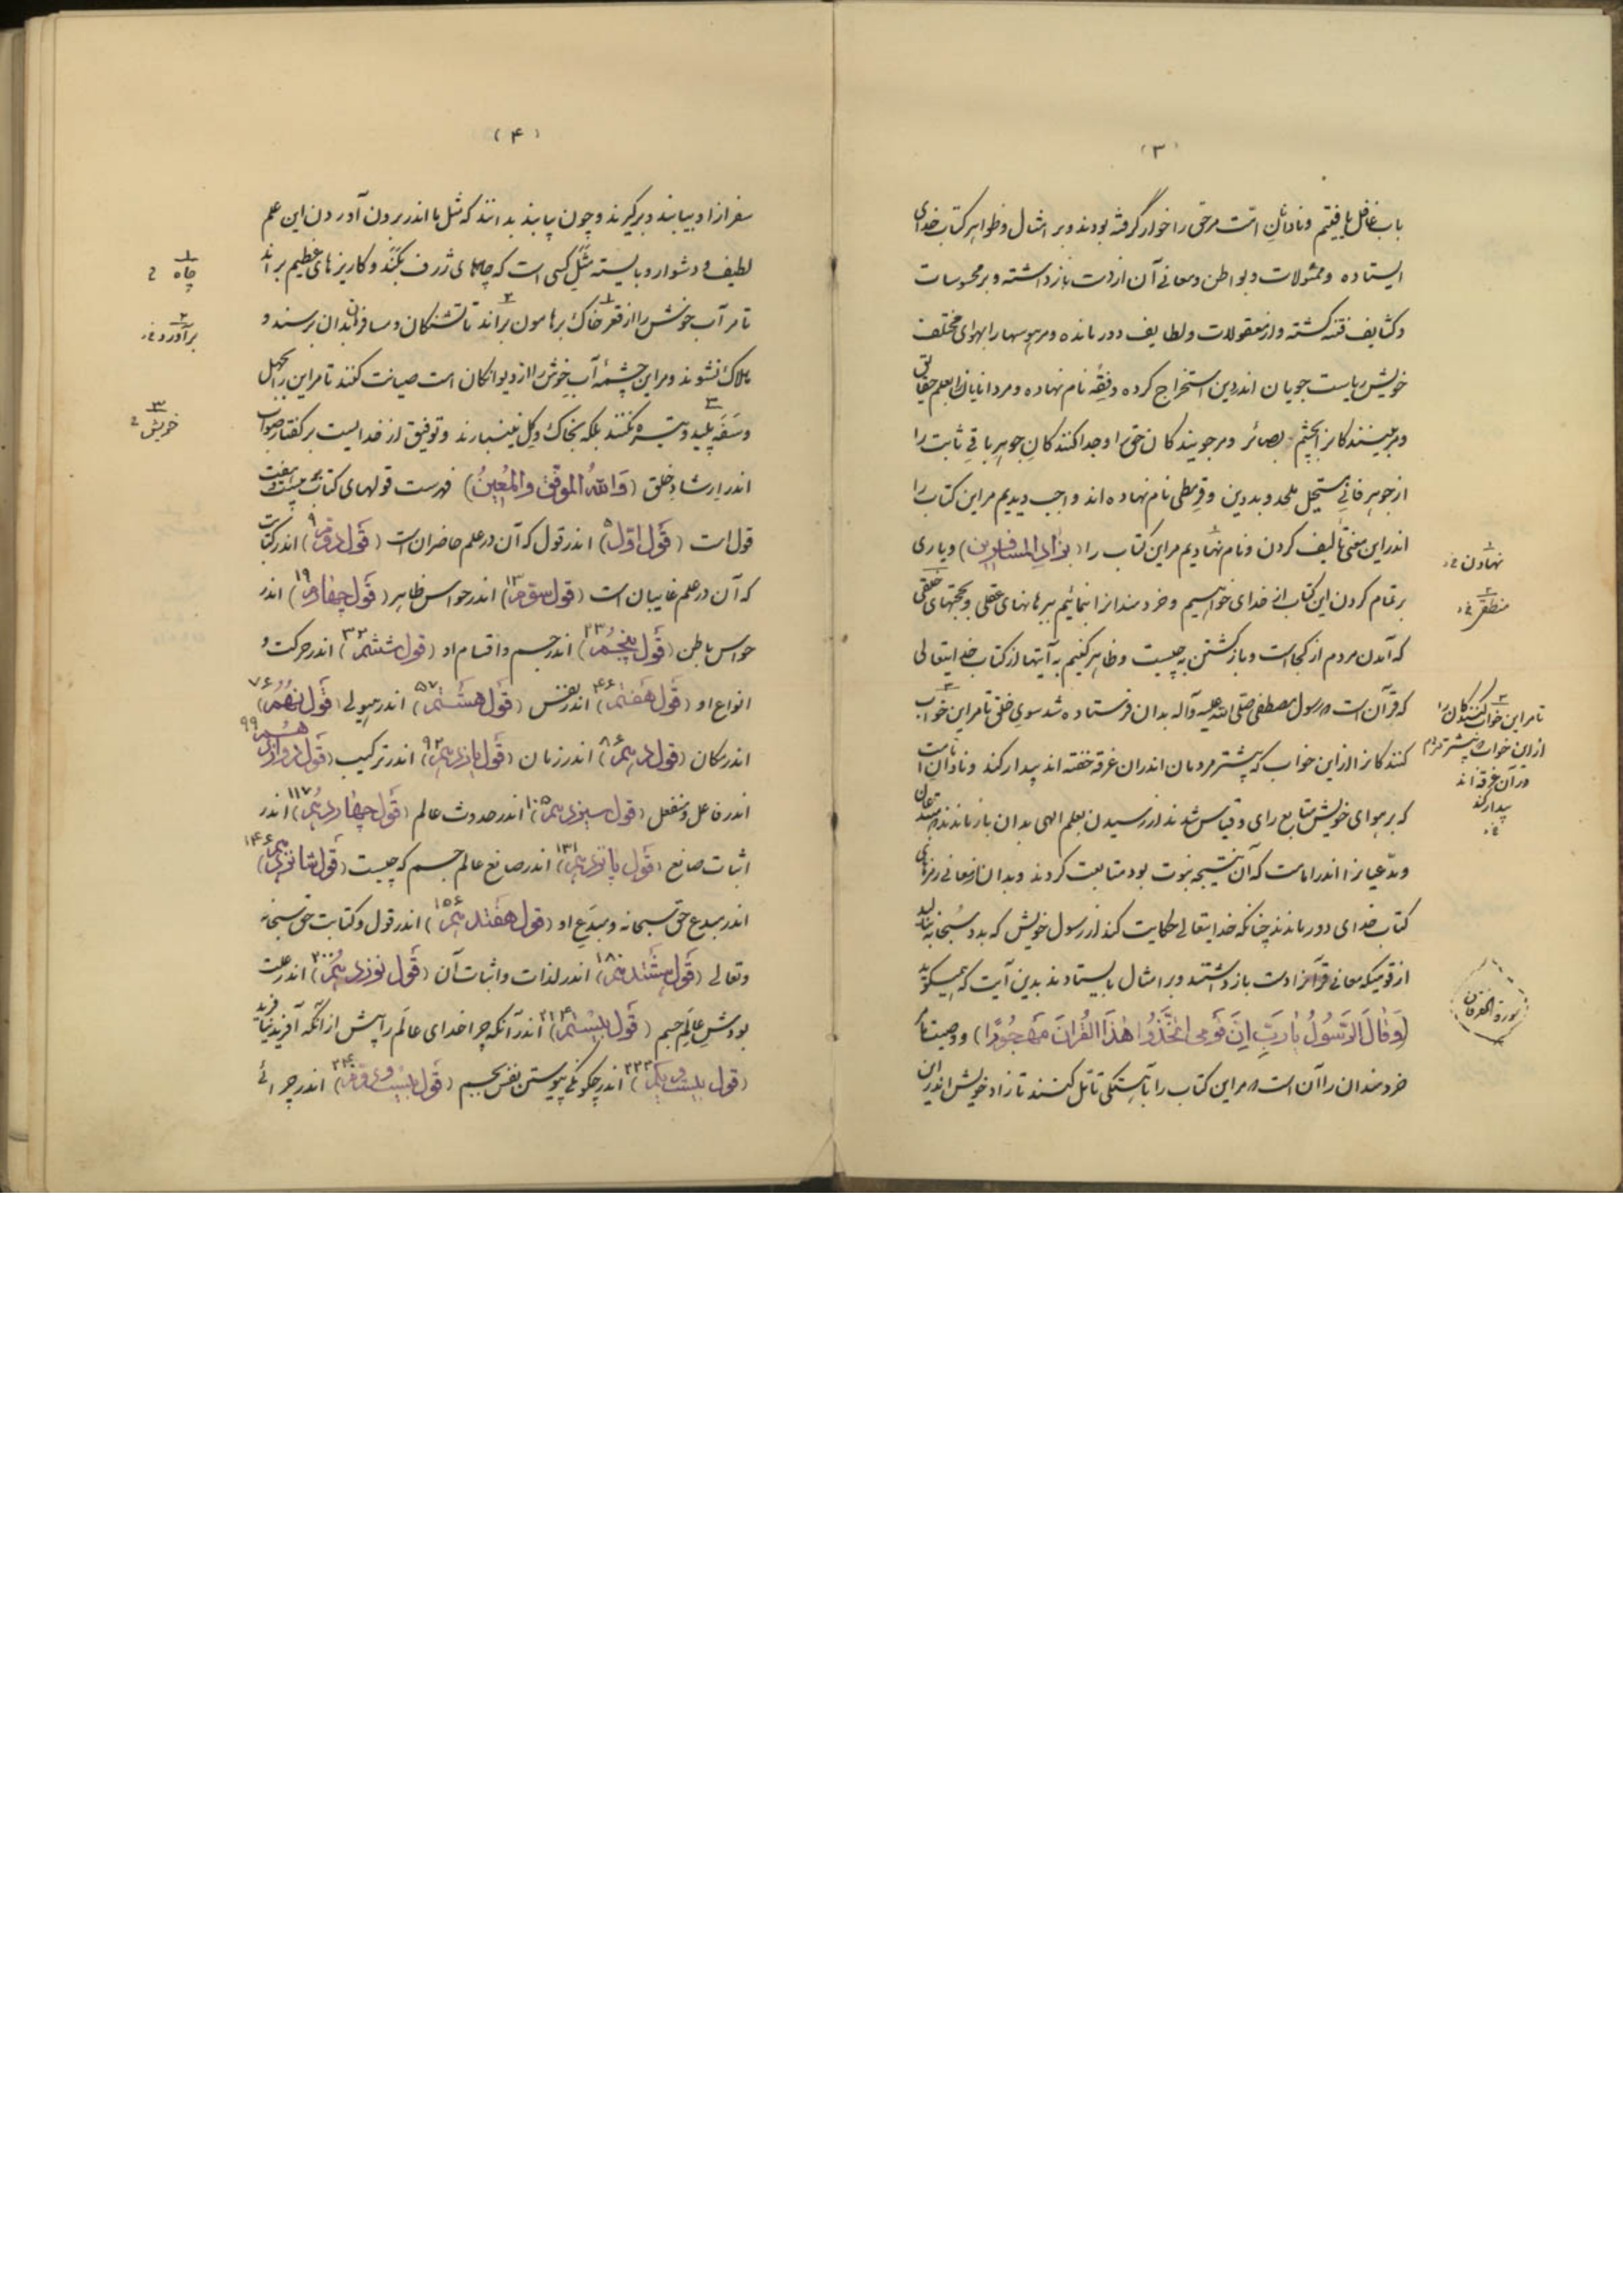 (۳)
باب غافل یافتیم و نادانان امت مر حق را خوار گرفته بودند و بر امثال و ظواهر کتاب خدای
ایستاده و ممثولات و بواطن و معانی آن از دست بازداشته و بر محسوسات
و کثایف فتنه گشته و از معقولات و لطایف دور مانده و مر هوسها را بهوای مختلف
خویش ریاست جویان اندر دین استخراج کرده و فقه نام نهاده و مر دانایان را بعلم حقایق
و مر بینندگانرا بچشم بصائر و مر جویندگان حق را و جدا کنندگان جوهر باقی ثابت را
از جوهر فانی مستحیل ملحد و بددین و قرمطی نام نهاده اند واجب دیدیم مر این کتاب را
اندر این معنی تألیف کردن و نام نهادیم مر این کتاب را (بزاد المسافرین) و یاری
بر تمام کردن این کتاب از خدای خواهیم و خردمندانرا بنمائیم ببرهانهای عقلی و بحجتهای خلقی
که آمدن مردم از کجاست و بازگشتن بچیست و ظاهر کنیم بآیتها از کتاب خدایتعالی
که قرآن است که رسول مصطفی صلی الله علیه و آله بدان فرستاده شد سوی خلق تا مر این خواب
کنندگانرا از این خواب که بیشتر مردمان اندران غرقه خفته اند بیدار کند و نادان امت
که بر هوای خویش متابع رای و قیاس شدند از رسیدن بعلم الهی بدان باز ماندند که متعبدان
و مدعیانرا اندر امامت که آن نتیجه نبوت بود متابعت کردند و بدان از معانی رمزهای
کتاب خدای دور ماندند چنانکه خدایتعالی حکایت کند از رسول خویش که بدو سبحانه بنالید
از قومیکه معانی قرآنرا دست باز داشتند و بر امثال بایستادند بدین آیت که همیگوید
(وَقَالَ الرَّسُولُ یَارَبِّ اِنَّ قَومِی اتَّخَذُوا هٰذَا القُرانَ مَهجُورًا) و وصیت ما
خردمندان را آن است که مر این کتاب را بآهستگی تأمل کنند تا زاد خویش اندر این
۱
نهادن خ
۲
منطقی خ
۳
تا مر این خواب کنندگان را
از این خواب که بیشتر مردم
در آن غرقه اند
بیدار کند
خ
سورة الفرقان
(۴)
سفر ازاو بیابند و بر گیرند و چون بیابند بدانند که مثل ما اندر بیرون آوردن این علم
لطیف و دشوار و بایسته مثل کسی است که چاههای ژرف بکند و کاریزهای عظیم براند
تا مر آب خوش را از قعر خاک بر هامون براند تا تشنگان و مسافران بدان برسند و
هلاک نشوند و مر این چشمهٔ آب خوش را از دیوانگان امت صیانت کنند تا مر این را بجهل
و سفه پلید و تیره نکنند بلکه بخاک و گل نینبارند و توفیق از خدایست بر گفتار صواب
اندر ارشاد خلق (وَاللهُ المُوَفِّق وَالمُعِینُ) فهرست قولهای کتاب بیست و هفت
قول است (قول اول) ۵ اندر قول که آن در علم حاضران است (قول دوم) ۹ اندر کتابت
که آن در علم غایبان است (قول سوم) ۱۳ اندر حواس ظاهر (قول چهارم) ۱۹ اندر
حواس باطن (قول پنجم) ۲۳ اندر جسم و اقسام او (قول ششم) ۳۲ اندر حرکت و
انواع او (قول هفتم) ۴۶ اندر نفس (قول هشتم) ۵۷ اندر هیولی (قول نهم) ۷۶
اندر مکان (قول دهم) ۸۶ اندر زمان (قول یازدهم) ۹۲ اندر ترکیب (قول دوازدهم) ۹۹
اندر فاعل و منفعل (قول سیزدهم) ۱۰۵ اندر حدوث عالم (قول چهاردهم) ۱۱۷ اندر
اثبات صانع (قول پانزدهم) ۱۳۱ اندر صانع عالم جسم که چیست (قول شانزدهم) ۱۴۶
اندر مبدع حق سبحانه و مبدَع او (قول هفتدهم) ۱۵۶ اندر قول و کتابت حق سبحانه
و تعالی (قول هشتدهم) ۱۸۰ اندر لذات و اثبات آن (قول نوزدهم) ۲۰۰ اندر علت
بودش عالم جسم (قول بیستم) ۲۱۴ اندر آنکه چرا خدای عالم را پیش از آنکه آفرید نیافرید
(قول بیست و یکم) ۲۳۳ اندر چگونگی پیوستن نفس بجسم (قول بیست و دوم) ۲۴۰ اندر چرائی
۱
چاه خ
۲
برآورد خ
۳
خوش خ